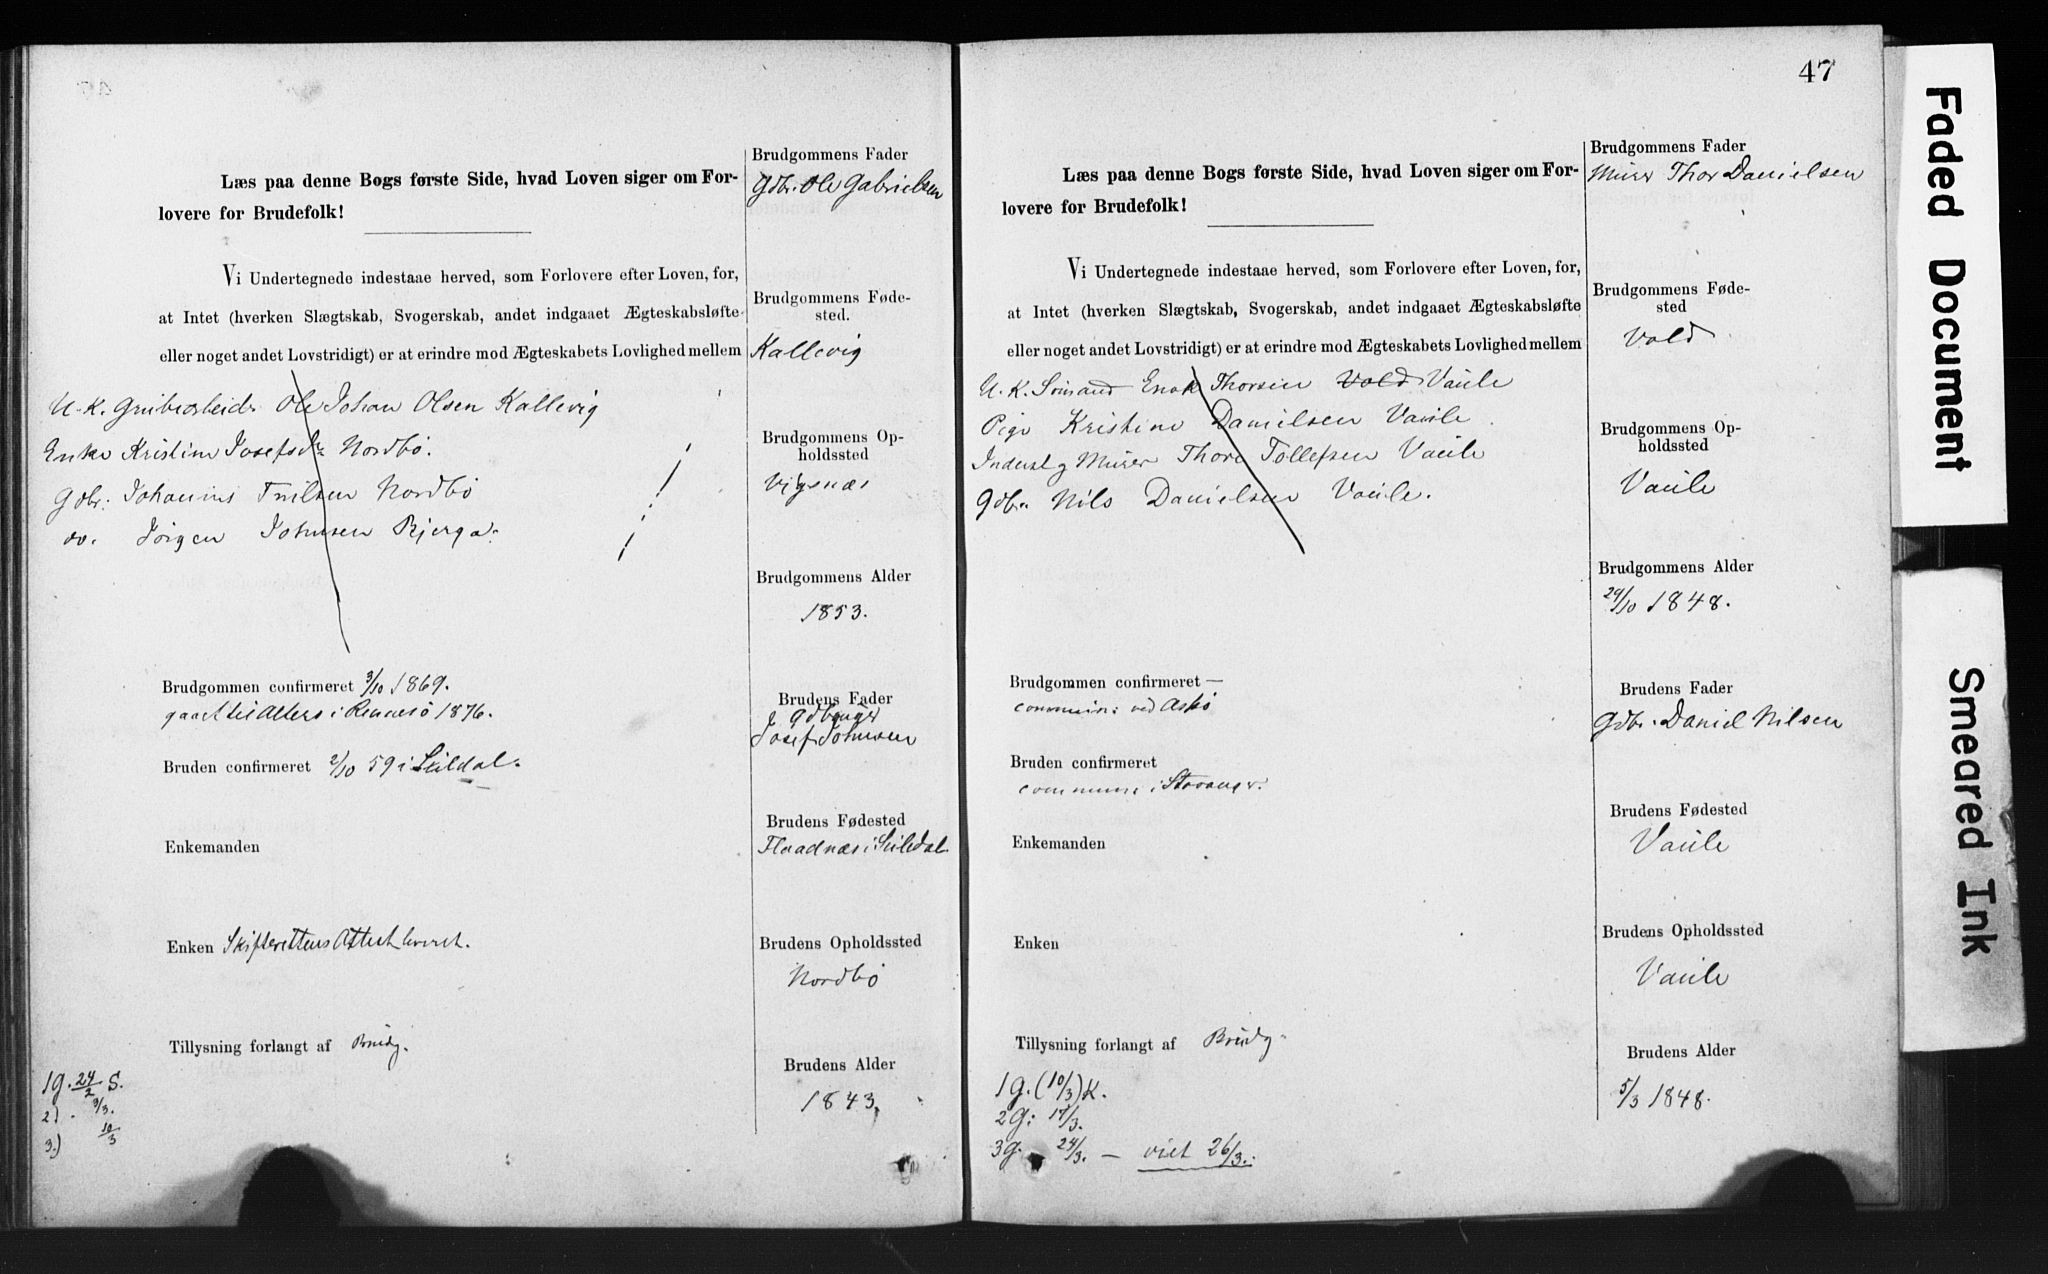 Læs paa denne Bogs første Side, hvad Loven siger om For-
lovere for Brudefolk!
Vi Undertegnede indestaae herved, som Forlovere efter Loven, for,
at Intet (hverken Slægtskab, Svogerskab, andet indgaaet Ægteskabsløfte
eller noget andet Lovstridigt) er at erindre mod Ægteskabets Lovlighed mellem
U. K. Grubearbeid. Ole Johan Olsen Kallevig
Enke Kristine Josefsd. Nordbö.
Gdbr. Johannes Nordbö
do. Jörgen Johnsen Bjerga.
Brudgommen confirmeret 3/10 1869.
gaaet til Alters i Rennesö 1876.
Bruden confirmeret 2/10 59 i Suldal.
Enkemanden
Enken Skifterettens Attest leveret.
Tillysning forlangt af Brudg.
1 G. 24/2 S.
2) . 3/3.
3.) 10/3
Brudgommens Fader
Gdbr. Ole Gabrielsen
Brudgommens Føde-
sted.
Kallevig
Brudgommens Op-
holdssted
Vigsnæs
Brudgommens Alder
1853.
Brudens Fader
Gdbruger
Josef Johnsen
Brudens Fødested
Flaadnæs i Suledal
Brudens Opholdssted
Nordbö
Brudens Alder
1843.
47
Læs paa denne Bogs første Side, hvad Loven siger om For-
lovere for Brudefolk!
Vi Undertegnede indestaae herved, som Forlovere efter Loven, for,
at Intet (hverken Slægtskab, Svogerskab, andet indgaaet Ægteskabsløfte
eller noget andet Lovstridigt) er at erindre mod Ægteskabets Lovlighed mellem
U. K. Sömand Enok Thorsen Vold Vaule
Pige Kristine Danielsen Vaule.
Inderst og Murer Thore Tollefsen Vaule
Gdbr. Nils Danielsen Vaule.
Brudgommen confirmeret —
ved Askö
Bruden confirmeret
i Stavanger.
Enkemanden
Enken
Tillysning forlangt af Brudg.
1 G. (10/3) K.
2 G: 17/3.
3 G. 24/3. — viet 26/3.
Brudgommens Fader
Murer Thor Danielsen
Brudgommens Føde-
sted
Vold
Brudgommens Op-
holdssted
Vaule
Brudgommens Alder
29/10 1848.
Brudens Fader
Gdbr. Daniel Nilsen
Brudens Fødested
Vaule
Brudens Opholdssted
Vaule
Brudens Alder
5/3 1848.
Faded Document
Smeared Ink